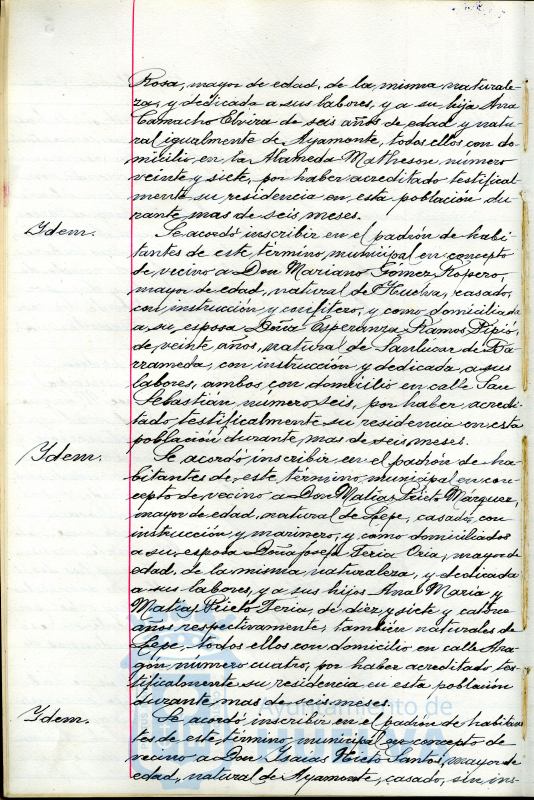 Rosa, mayor de edad, de la misma naturale-
za, y dedicada a sus labores, y a su hija Ana
Camacho Elvira de seis años de edad y natu-
ral igualmente de Ayamonte, todos ellos con do-
micilio en la Alameda Matheson número
veinte y siete, por haber acreditado testifical-
mente su residencia en esta población du-
rante mas de seis meses.
Idem. Se acordó inscribir en el padrón de habi-
tantes de este término municipal en concepto
de vecino a Don Mariano Gómez Ropero,
mayor de edad, natural de Huelva, casado,
con instrucción y confitero, y como domiciliada
a su esposa Doña Esperanza Ramos Pipió,
de veinte años, natural de Sanlúcar de Ba-
rrameda, con instrucción y dedicada a sus
labores, ambos con domicilio en calle San
Sebastián número seis, por haber acredi-
tado testificalmente su residencia en esta
población durante mas de seis meses.
Idem. Se acordó inscribir en el padrón de ha-
bitantes de este término municipal en con-
cepto de vecino a Don Matias Prieto Márquez,
mayor de edad, natural de Lepe, casado, con
instrucción y marinero, y como domiciliados
a su esposa Doña Josefa Feria Oria, mayor de
edad, de la misma naturaleza, y dedicada
a sus labores, y a sus hijos Ana Maria y
Matias Prieto Feria, de diez y siete y catorce
años respectivamente, también naturales de
Lepe, todos ellos con domicilio en calle Ara-
gón número cuatro, por haber acreditado tes-
tificalmente su residencia en esta población
durante mas de seis meses.
Idem. Se acordó inscribir en el padrón de habitan-
tes de este término municipal en concepto de
vecino a Don Isaias Nieto Santos, mayor de
edad, natural de Ayamonte, casado, sin ins-
Ayuntamiento de
HUELVA